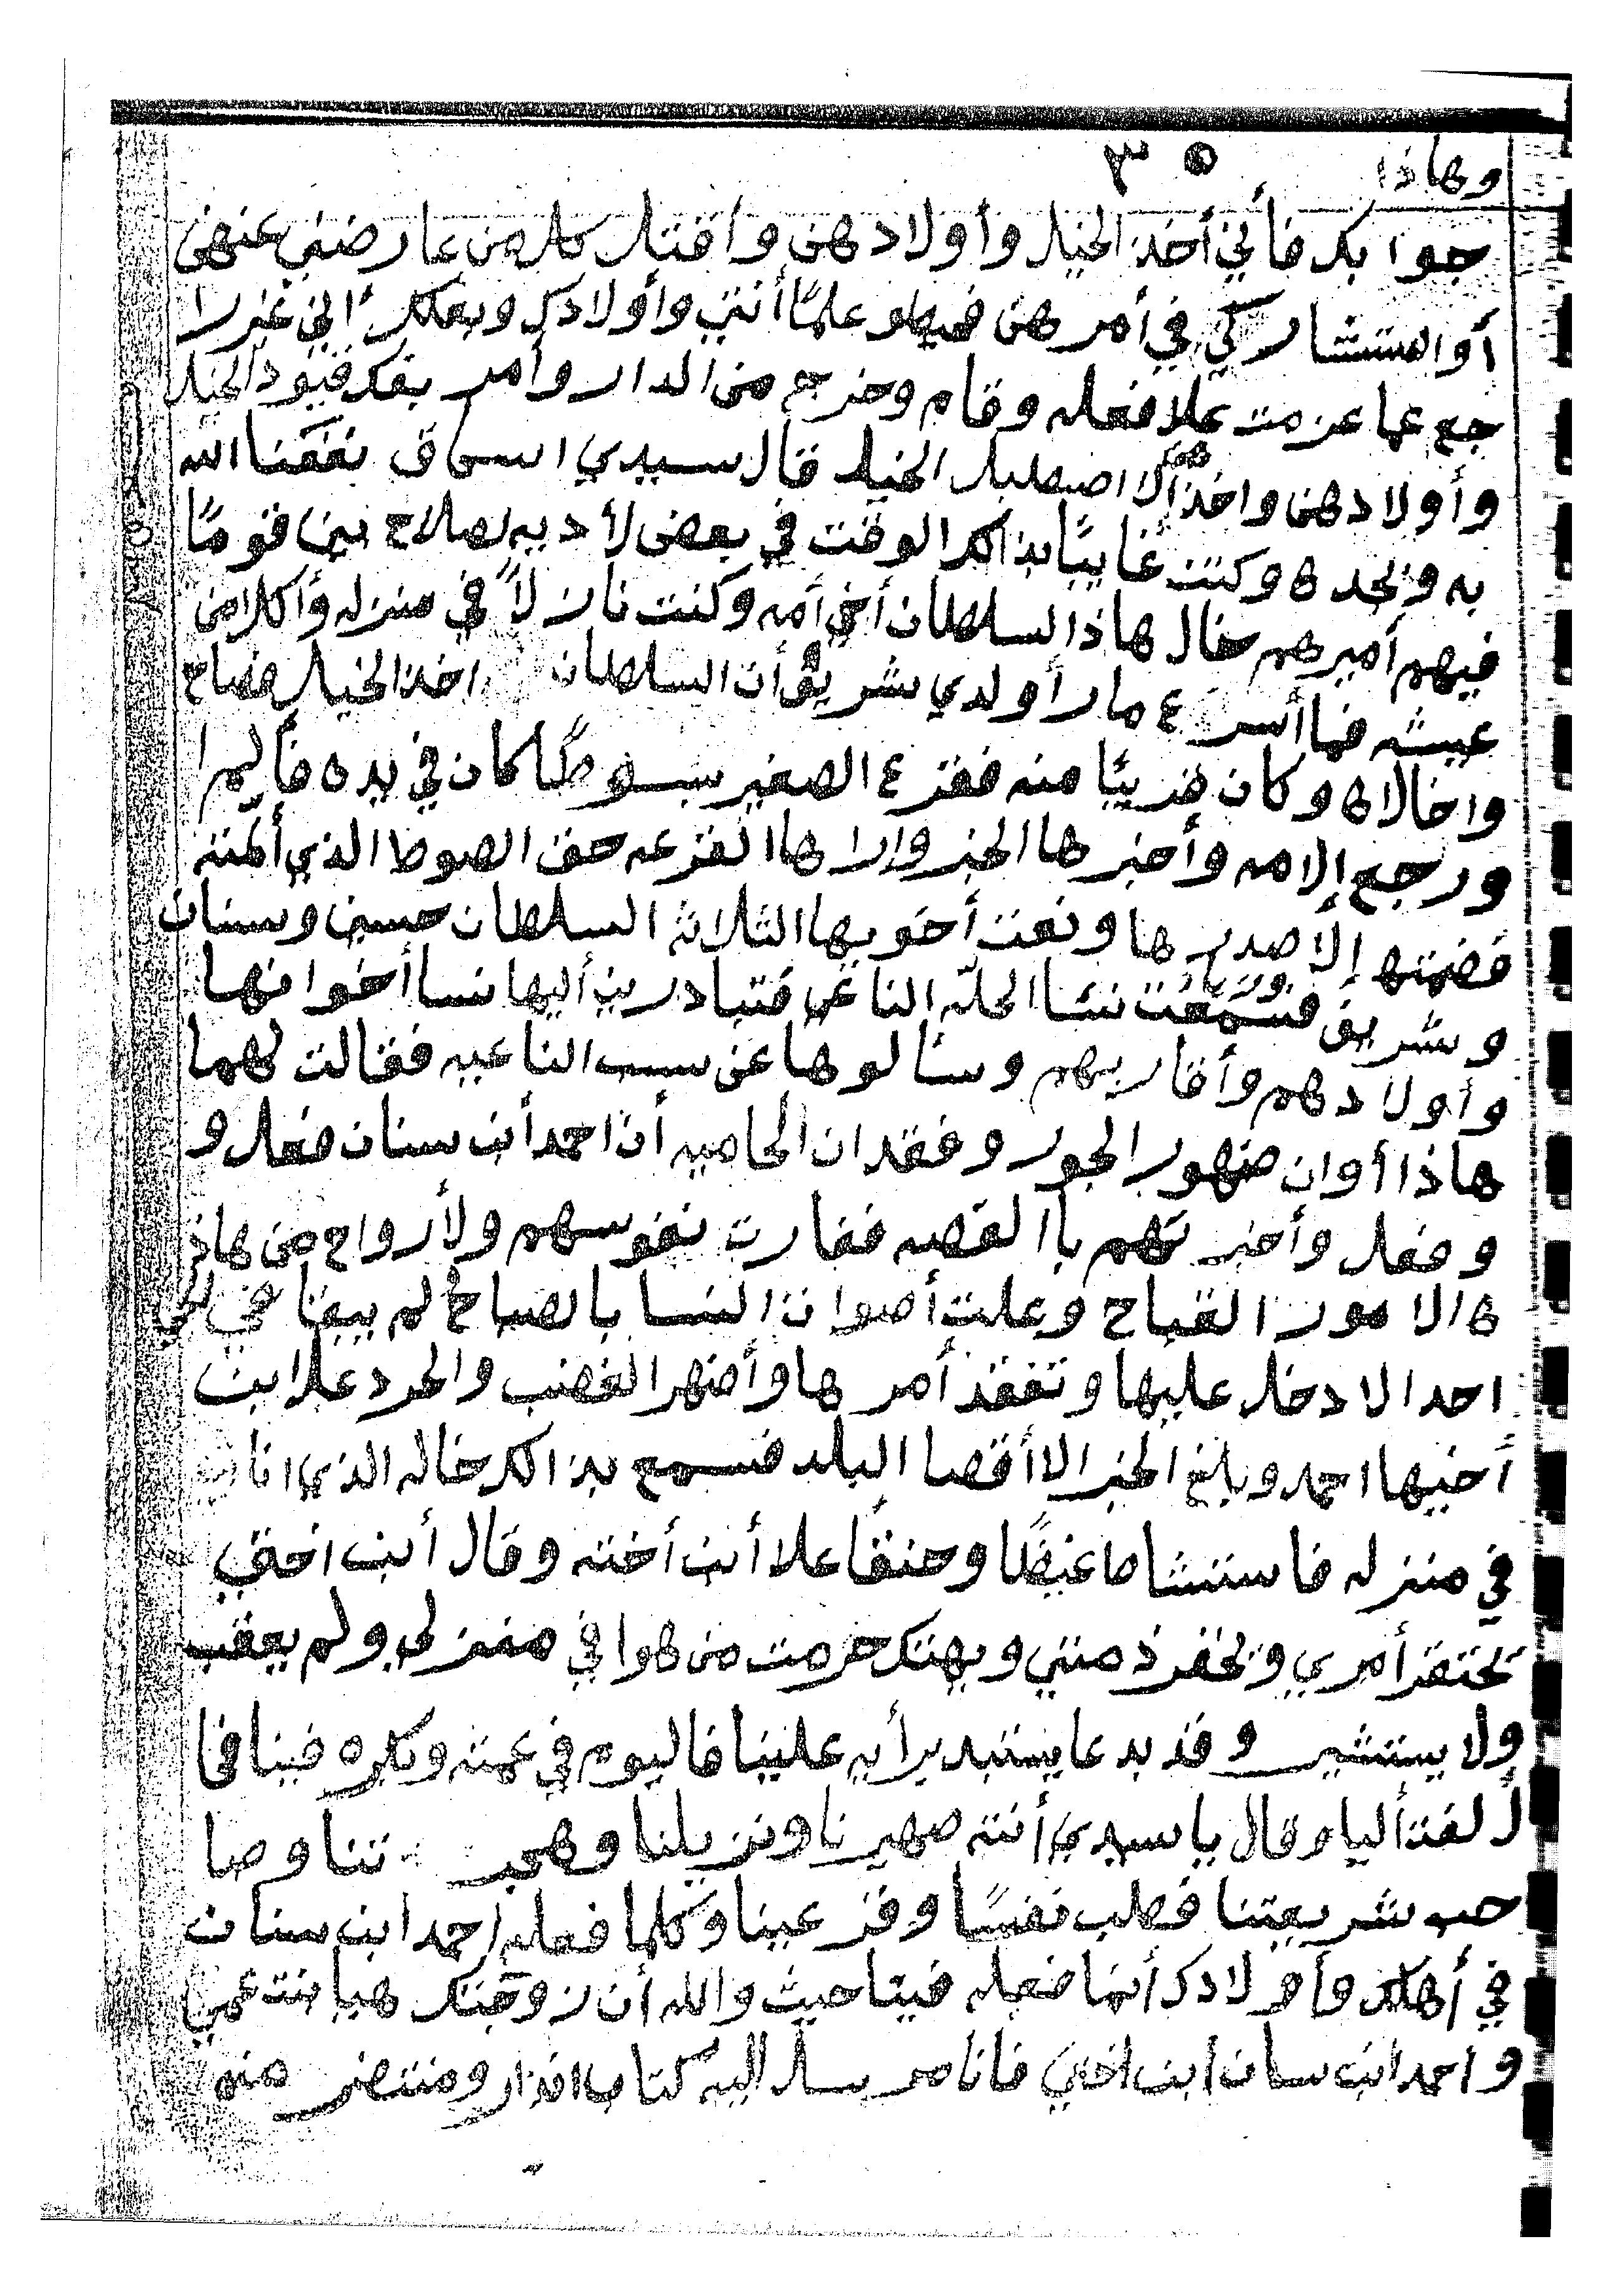 وهاذا ٣٥
جوابك فأني أخذ الخيل وأولادهن وأقتل كلمن عارضني عنهن
أو استشاركي في أمرهن فهيلو علمًا أنتي وأولادك وبعلك اني غزرا
جع عما عزمت علا فعله وقام وخرج من الدار وأمر بفك قيود الخيل
وأولادهن واخذ الا اصطبل الخيل قال سيدي اسحاق نفقنا الله
به وبجده وكنت غايبًا بذالك الوقت في بعض لأديه لصلاح بين قومًا
فيهم أميرهم خال هاذا السلطان أخي أمه وكنت نازلاً في منزله وأكلا من
عيشه فما أسرع ما رأ ولدي شريق أن السلطان اخذ الخيل فصاح
واخالاه وكان قريبًا منه فقزع الصغير بسوطًا كان في يده فأليم ا
ورجع إلا امه وأخبرها الخبر وارا ها القزعه حق الصوط الذي ألمته
فضمته إلا صدرها ونعت أخويها الثلاثه السلطان حسين وسنان
وشريق فسمعت نسا الحله الناعي فتبادرين أليها نسا أخوانها
وأولادهم وأقاربهم وسألوها عن سبب الناعيه فقالت لهما
هاذا أوان ضهور الجور وفقدان الحاميه أن احمد أبن سنان فعل و
وفعل وأخبرتهم باالقصه ففارت نفوسهم ولأرواح من هاذ
ه الامور القباح وعلت أصوات النسا بالصباح لم يبقا في الحي
احدا الا دخل عليها وتفقذ أمرها وأضهر الغضب والحرد علا ابن
أخيها احمد وبلغ الخبر الا أقصا البلد فسمع بذالك خاله الذي انا
في منزله فاستشاط غيضًا وحنقًا علا أبن أخته وقال أبن اختي
يحتقر أمري ويخفر ذمتي ويهتك حرمت من هوا في منزلي ولم يعقب
ولا يستشير وقد بدعا يستبد برأيه علينا فاليوم في عمته وبكره فينا فا
لتفت أليا وقال يا سيدي أنته صهيرنا ونزيلنا وهجرتنا وصا
حب شريعتنا فطب نفسًا وقر عينا وكلما فعله احمد ابن سنان
في أهلك وأولادك أنما فعله فينا حيث والله أن زوجتك هيا بنت عمي
واحمد ابن سنان ابن اختي فانا مرسل اليه كتاب انذار ومنتضر منه